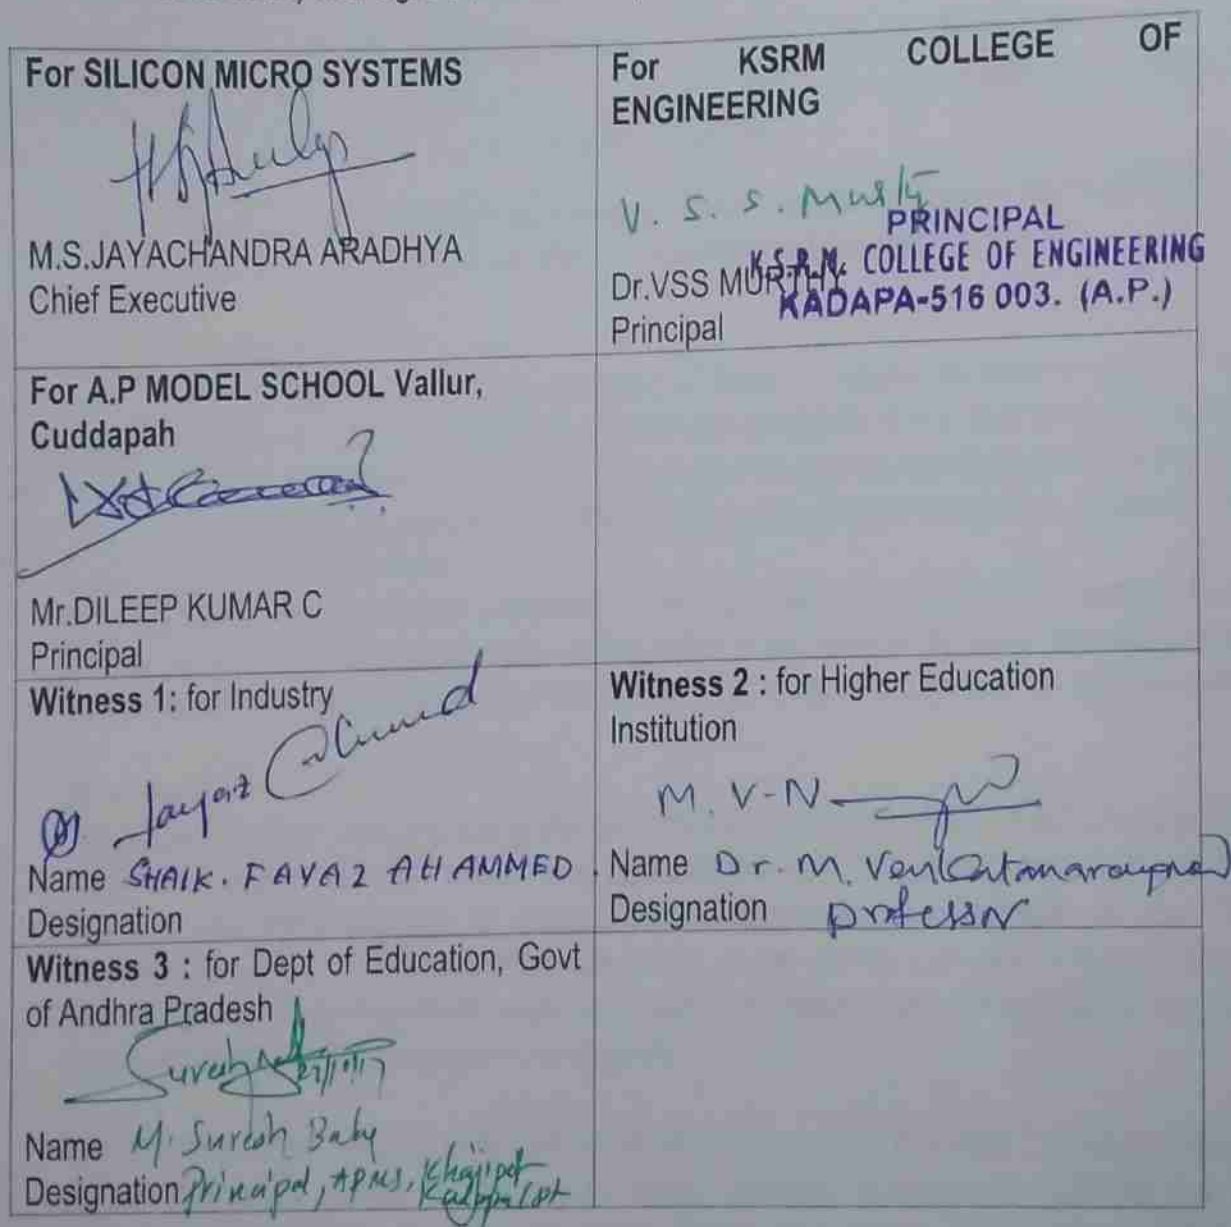 For SILICON MICRO SYSTEMS
M.S.JAYACHANDRA ARADHYA
Chief Executive
For KSRM COLLEGE OF
ENGINEERING
V. S. S. Murty
PRINCIPAL
K.S.R.M. COLLEGE OF ENGINEERING
KADAPA-516 003. (A.P.)
Dr.VSS MURTHY
Principal
For A.P MODEL SCHOOL Vallur,
Cuddapah
Mr.DILEEP KUMAR C
Principal
Witness 1: for Industry
Name SHAIK. FAYAZ AHAMMED
Designation
Witness 2 : for Higher Education
Institution
M. V-N
Name Dr. M. Venkatanarayana
Designation professor
Witness 3 : for Dept of Education, Govt
of Andhra Pradesh
Suresh
27/10/17
Name M. Suresh Babu
Designation Principal, APMS, Khajipet